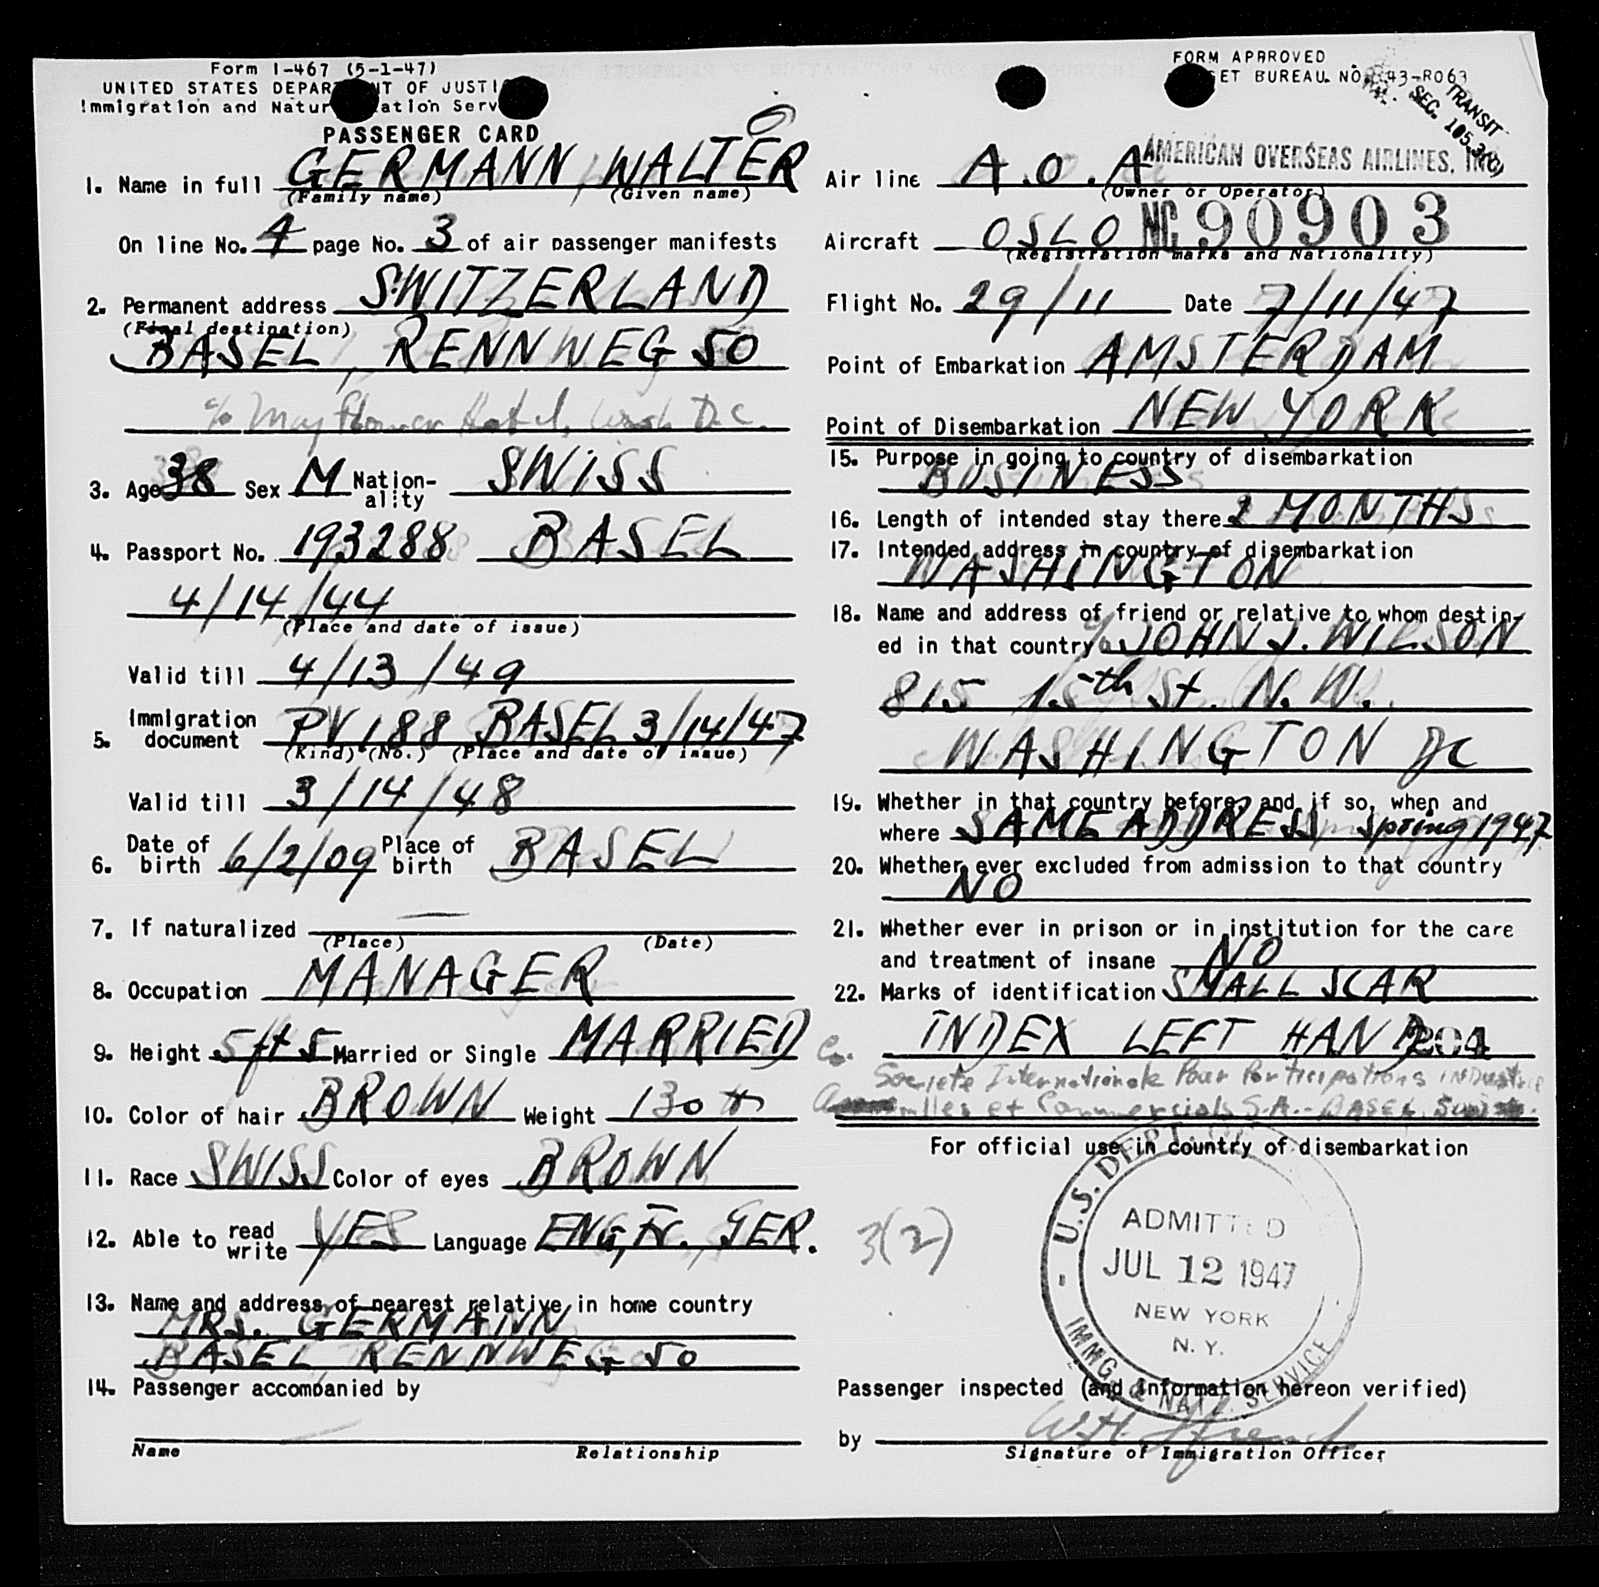 Form I-467 (5-1-47)
UNITED STATES DEPAR NT OF JUSTI
Immigration and Natur ation Serv
PASSENGER CARD
1. Name in full GERMANN, WALTER
(Family name) (Given name)
On line No. 4 page No. 3 of air passenger manifests
2. Permanent address SWITZERLAND
(Final destination)
BASEL, RENNWEG 50
c/o Mayflower Hotel, Wash D.C.
3. Age 38 Sex M Nation-ality SWISS
4. Passport No. 193288 BASEL
4/14/44
(Place and date of issue)
Valid till 4/13/49
5. Immigration document PV 188 BASEL 3/14/47
(Kind) (No.) (Place and date of issue)
Valid till 3/14/48
6. Date of birth 6/2/09 Place of birth BASEL
7. If naturalized —
(Place) (Date)
8. Occupation MANAGER
9. Height 5 ft 5 Married or Single MARRIED
10. Color of hair BROWN Weight 130
11. Race SWISS Color of eyes BROWN
12. Able to read write YES Language ENG, Fr., GER.
13. Name and address of nearest relative in home country
MRS. GERMANN
BASEL, RENNWEG 50
14. Passenger accompanied by
Name Relationship
FORM APPROVED
ET BUREAU NO. 43-R063
TRANSIT
SEC. 105.3(c)
Air line A.O.A. AMERICAN OVERSEAS AIRLINES, INC
(Owner or Operator)
Aircraft OSLO NC 90903
(Registration marks and Nationality)
Flight No. 29/11 Date 7/11/47
Point of Embarkation AMSTERDAM
Point of Disembarkation NEW YORK
15. Purpose in going to country of disembarkation
BUSINESS
16. Length of intended stay there 2 MONTHS
17. Intended address in country of disembarkation
WASHINGTON
18. Name and address of friend or relative to whom destin-
ed in that country c/o JOHN J. WILSON
815 15th St. N.W.
WASHINGTON DC
19. Whether in that country before, and if so, when and
where SAME ADDRESS Spring 1947
20. Whether ever excluded from admission to that country
NO
21. Whether ever in prison or in institution for the care
and treatment of insane NO
22. Marks of identification SMALL SCAR
INDEX LEFT HAND 204
Co. Societe Internationale Pour Participations INDustrie
et Commercials S.A. - BASEL,
For official use in country of disembarkation
3(2)
U.S. DEPT. OF
ADMITTED
JUL 12 1947
NEW YORK
N. Y.
IMMG. & NATZ. SERVICE
Passenger inspected (and information hereon verified)
by
Signature of Immigration Officer